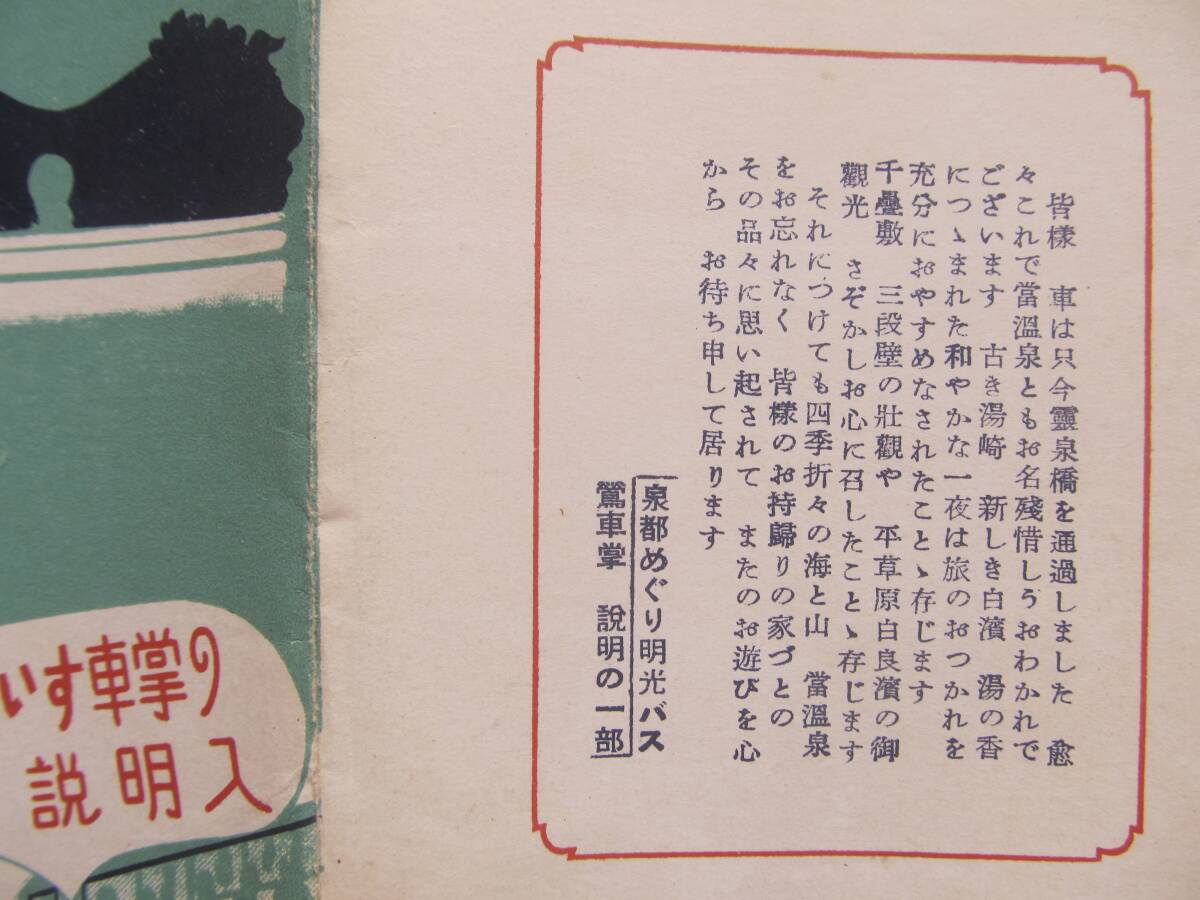 皆樣　車は只今靈泉橋を通過しました　愈
々これで當溫泉ともお名殘惜しうおわかれで
ございます　古き湯崎　新しき白濱　湯の香
につゝまれた和やかな一夜は旅のおつかれを
充分におやすめなされたことゝ存じます
千疊敷　三段壁の壯觀や　平草原白良濱の御
觀光　さぞかしお心に召したことゝ存じます
それにつけても四季折々の海と山　當溫泉
をお忘れなく　皆樣のお持歸りの家づとの
その品々に思い起されて　またのお遊びを心
から　お待ち申して居ります
泉都めぐり明光バス
鶯車掌　說明の一部
いす車掌の
説明入